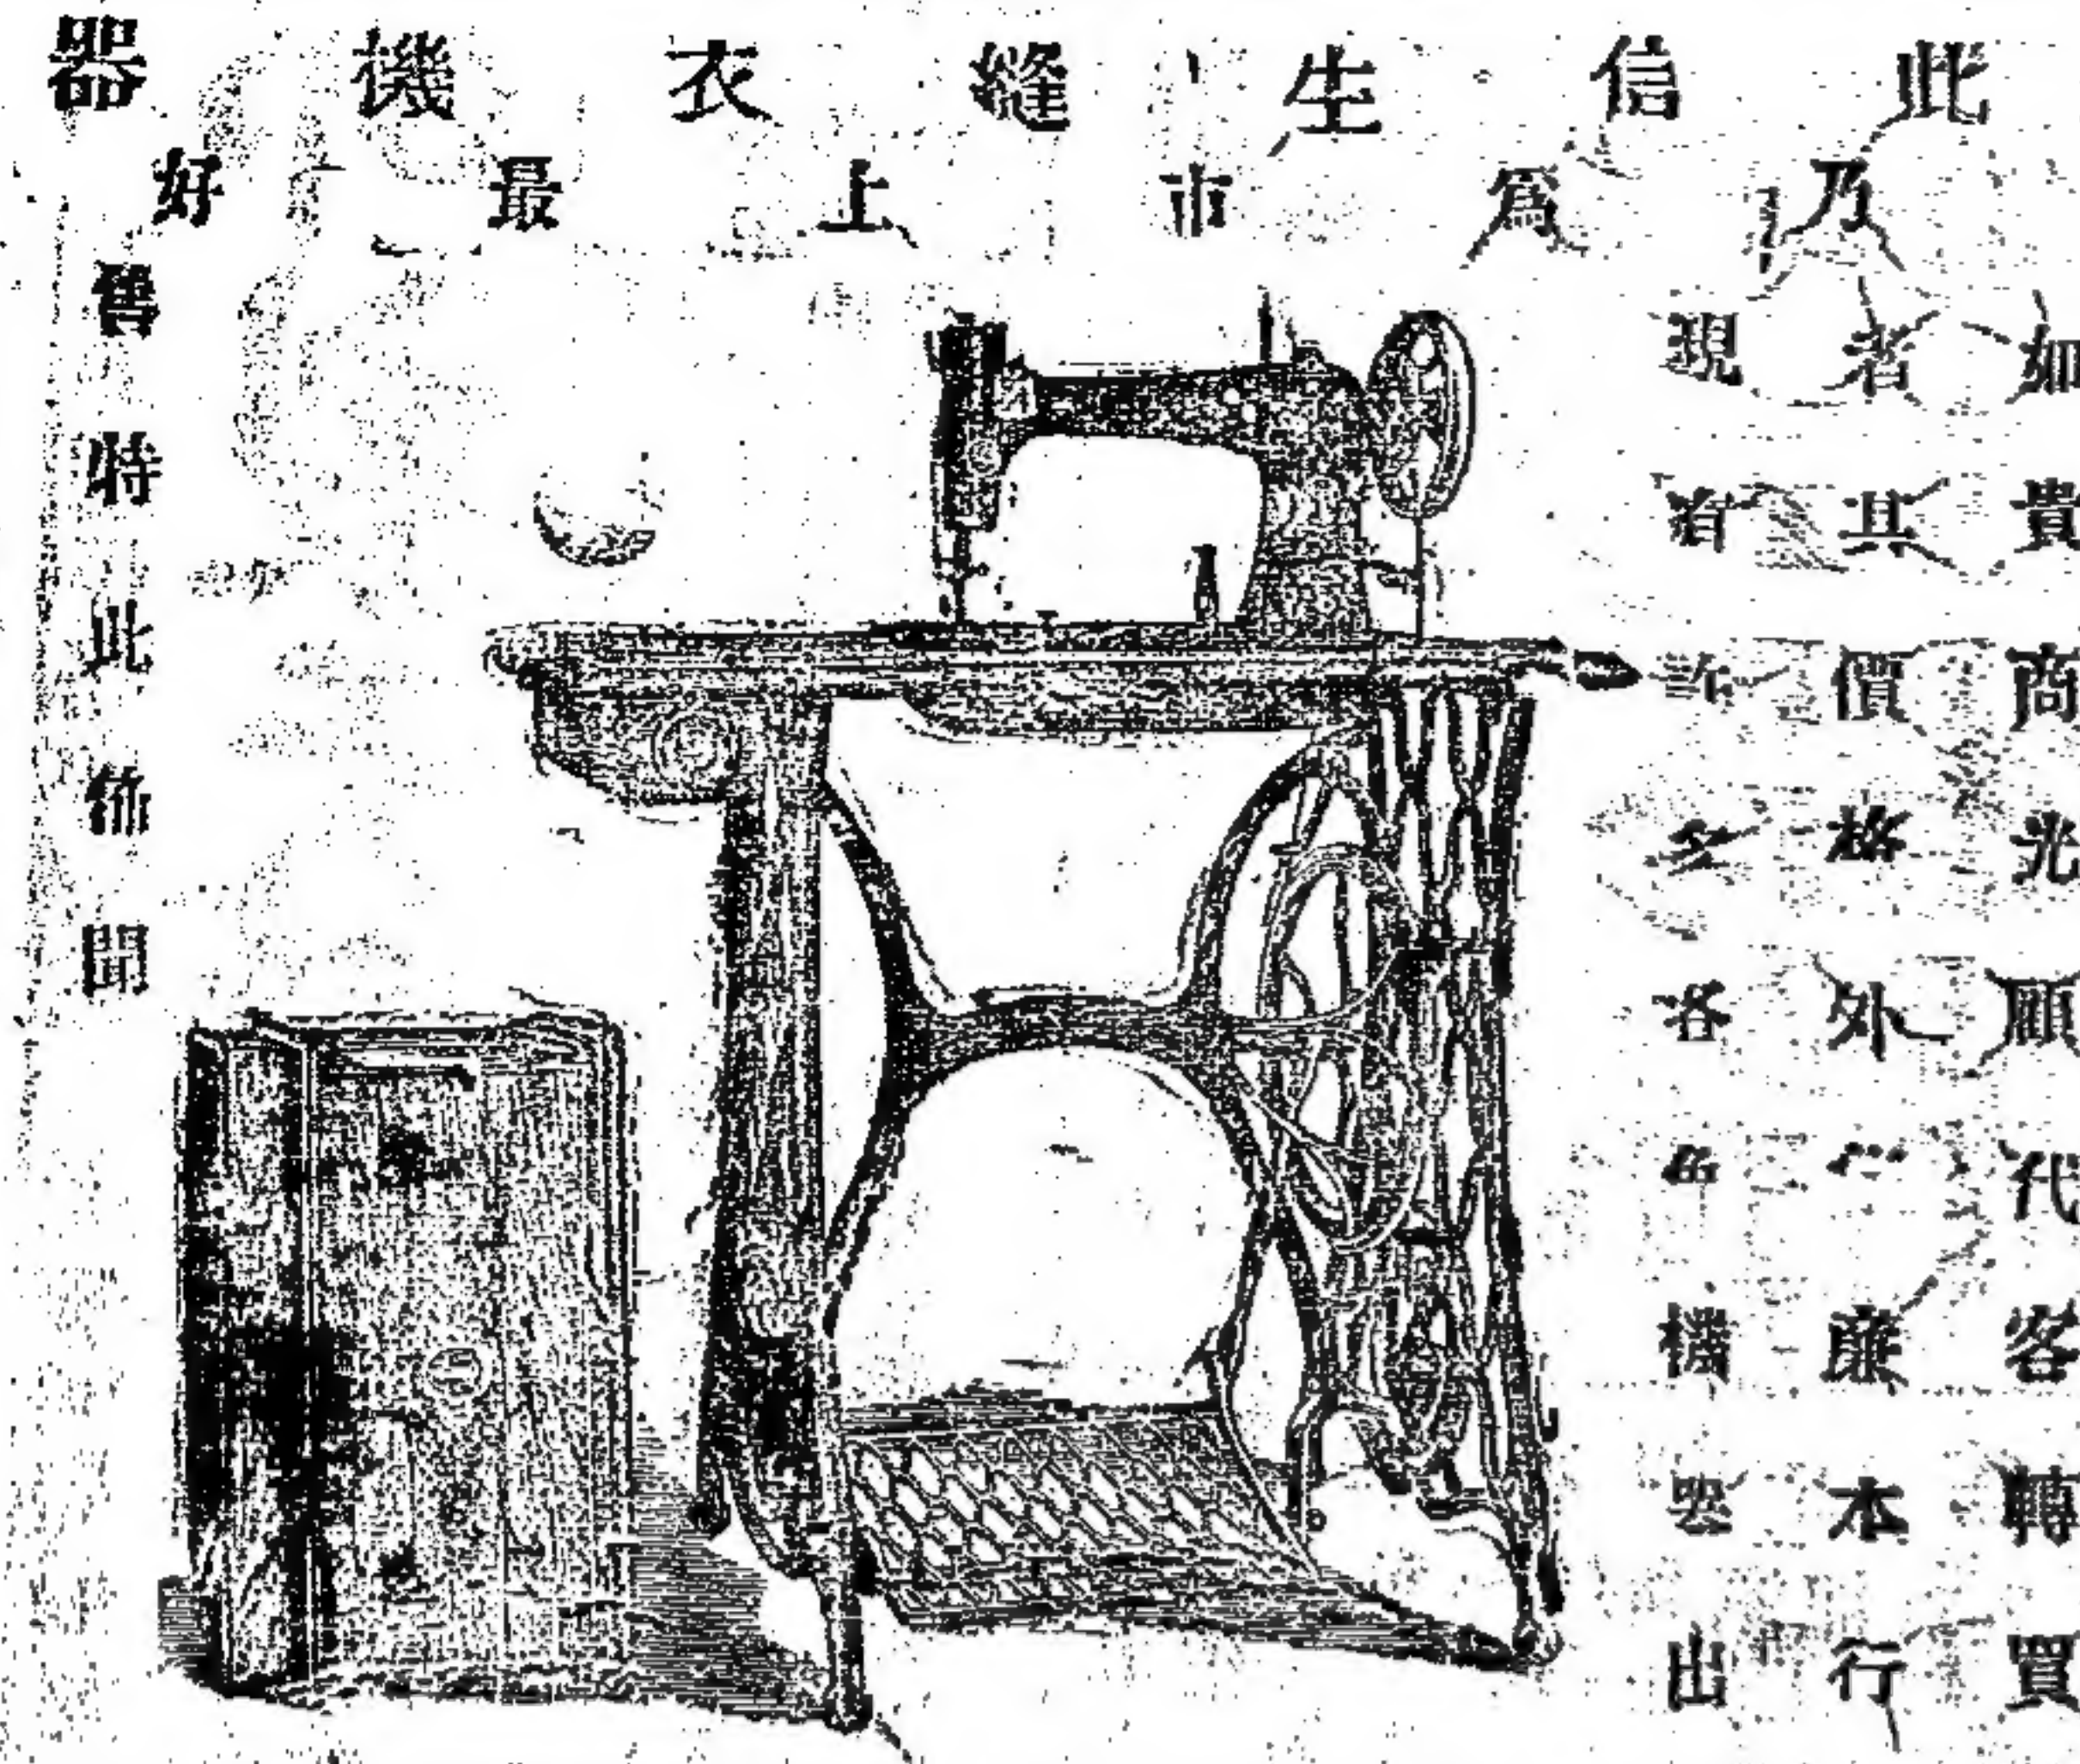 此信生縫衣機器
乃爲市上最好
如貴商光顧代客轉買
者其價格外廉本行
現有許多各色機器出
售特此佈聞